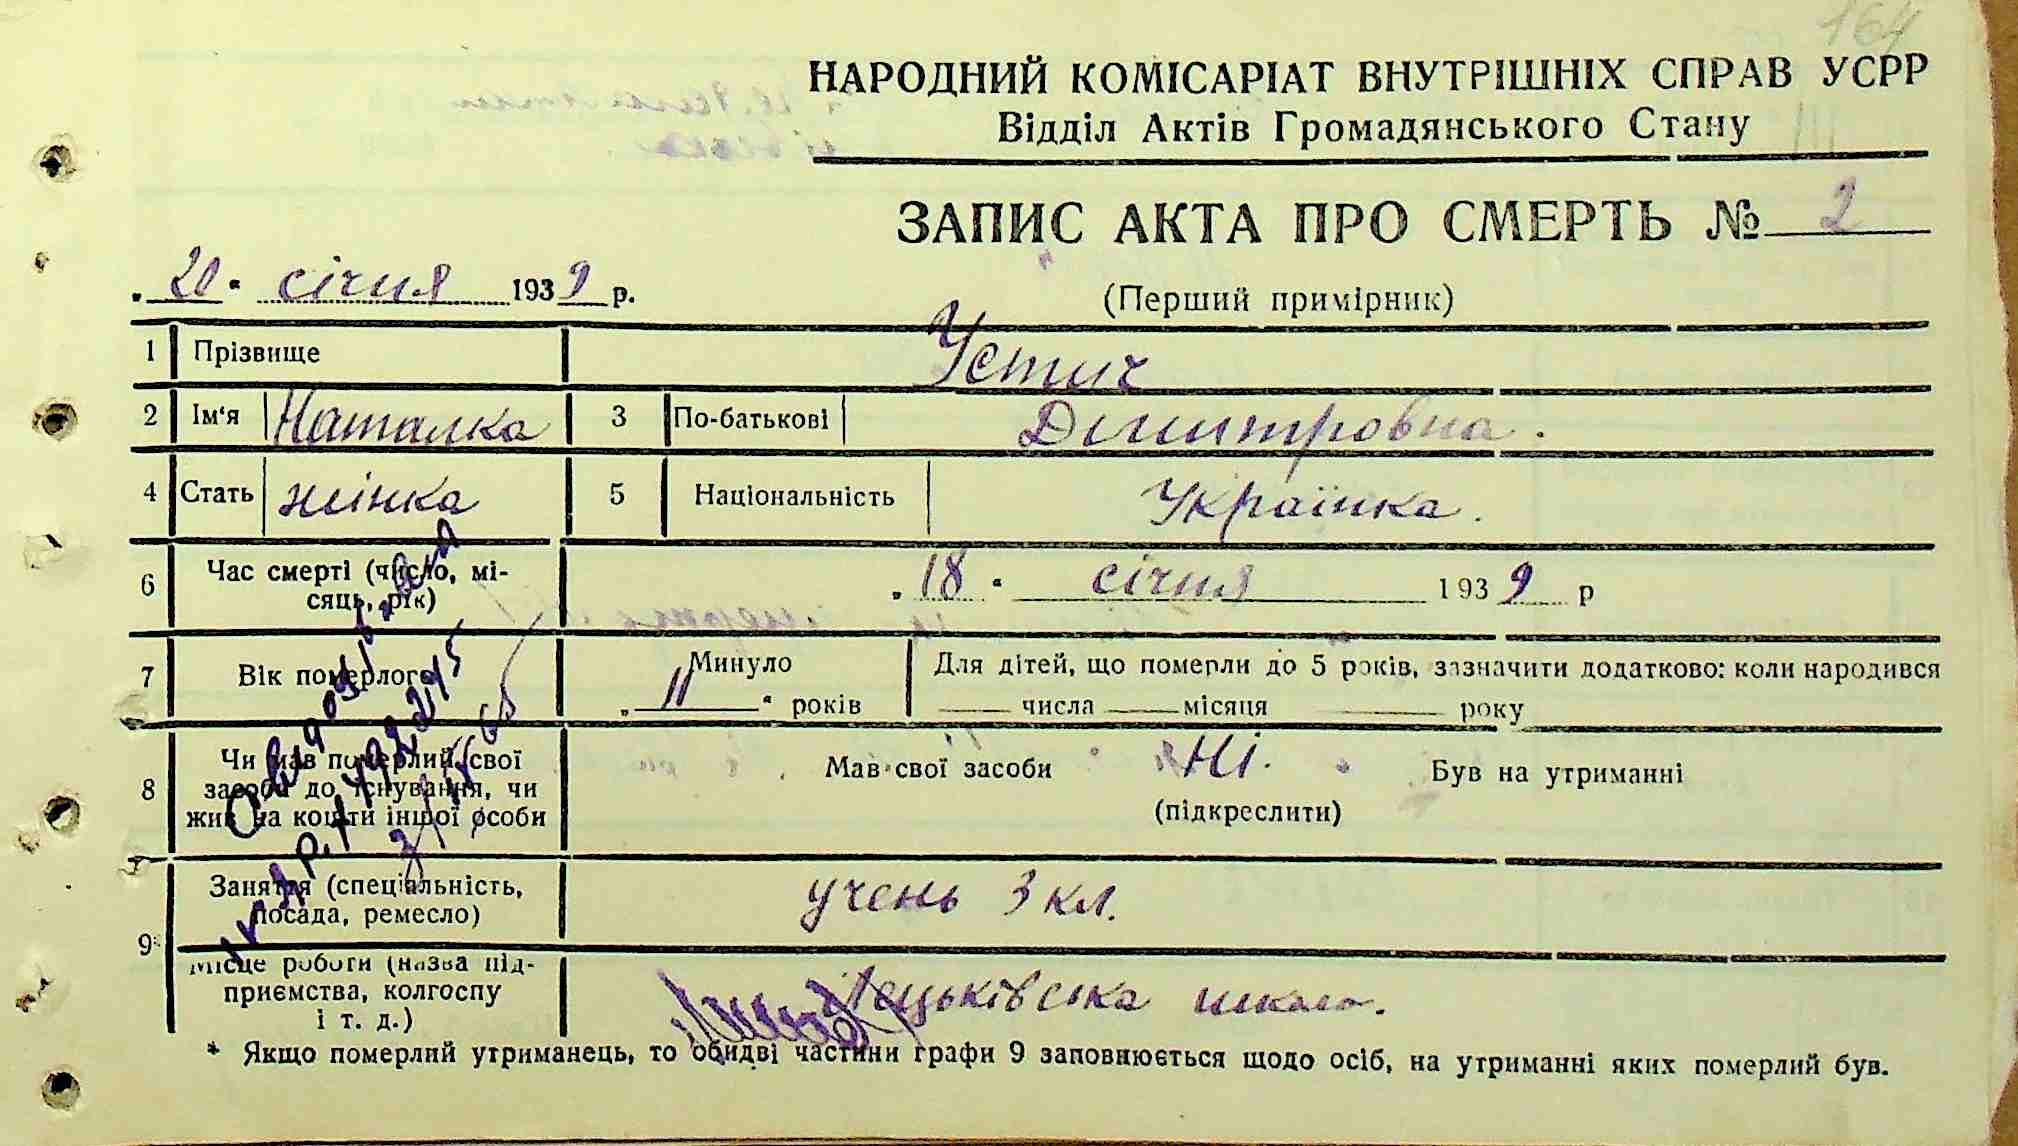 164
НАРОДНИЙ КОМІСАРІАТ ВНУТРІШНІХ СПРАВ УСРР
Відділ Актів Громадянського Стану
ЗАПИС АКТА ПРО СМЕРТЬ № 2
„ 20 “ січня 1939 р.
(Перший примірник)
1 Прізвище Устич
2 Ім‘я Наталка 3 По-батькові Димитровна.
4 Стать жінка 5 Національність Українка.
6 Час смерті (число, мі-
сяць, рік) „ 18 “ січня 1939 р
7 Вік померлого Минуло Для дітей, що померли до 5 років, зазначити додатково: коли народився
„ 11 “ років числа місяця року
8 Чи мав померлий свої
засоби до існування, чи
жив на кошти іншої особи
Мав свої засоби Ні. Був на утриманні
(підкреслити)
9 Заняття (спеціальність,
посада, ремесло) учень 3 кл.
Місце роботи (назва під-
приємства, колгоспу
і т. д.) школа.
* Якщо померлий утриманець, то обидві частини графи 9 заповнюється щодо осіб, на утриманні яких померлий був.